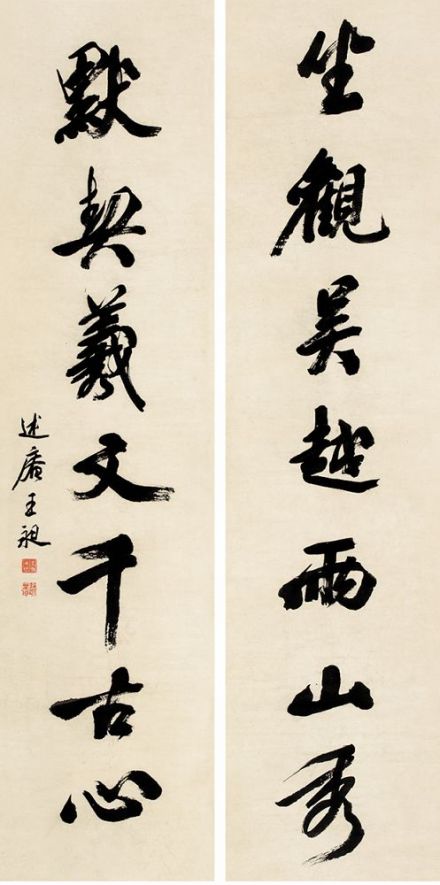 坐觀吳越兩山秀
默契羲文千古心
述庵王昶